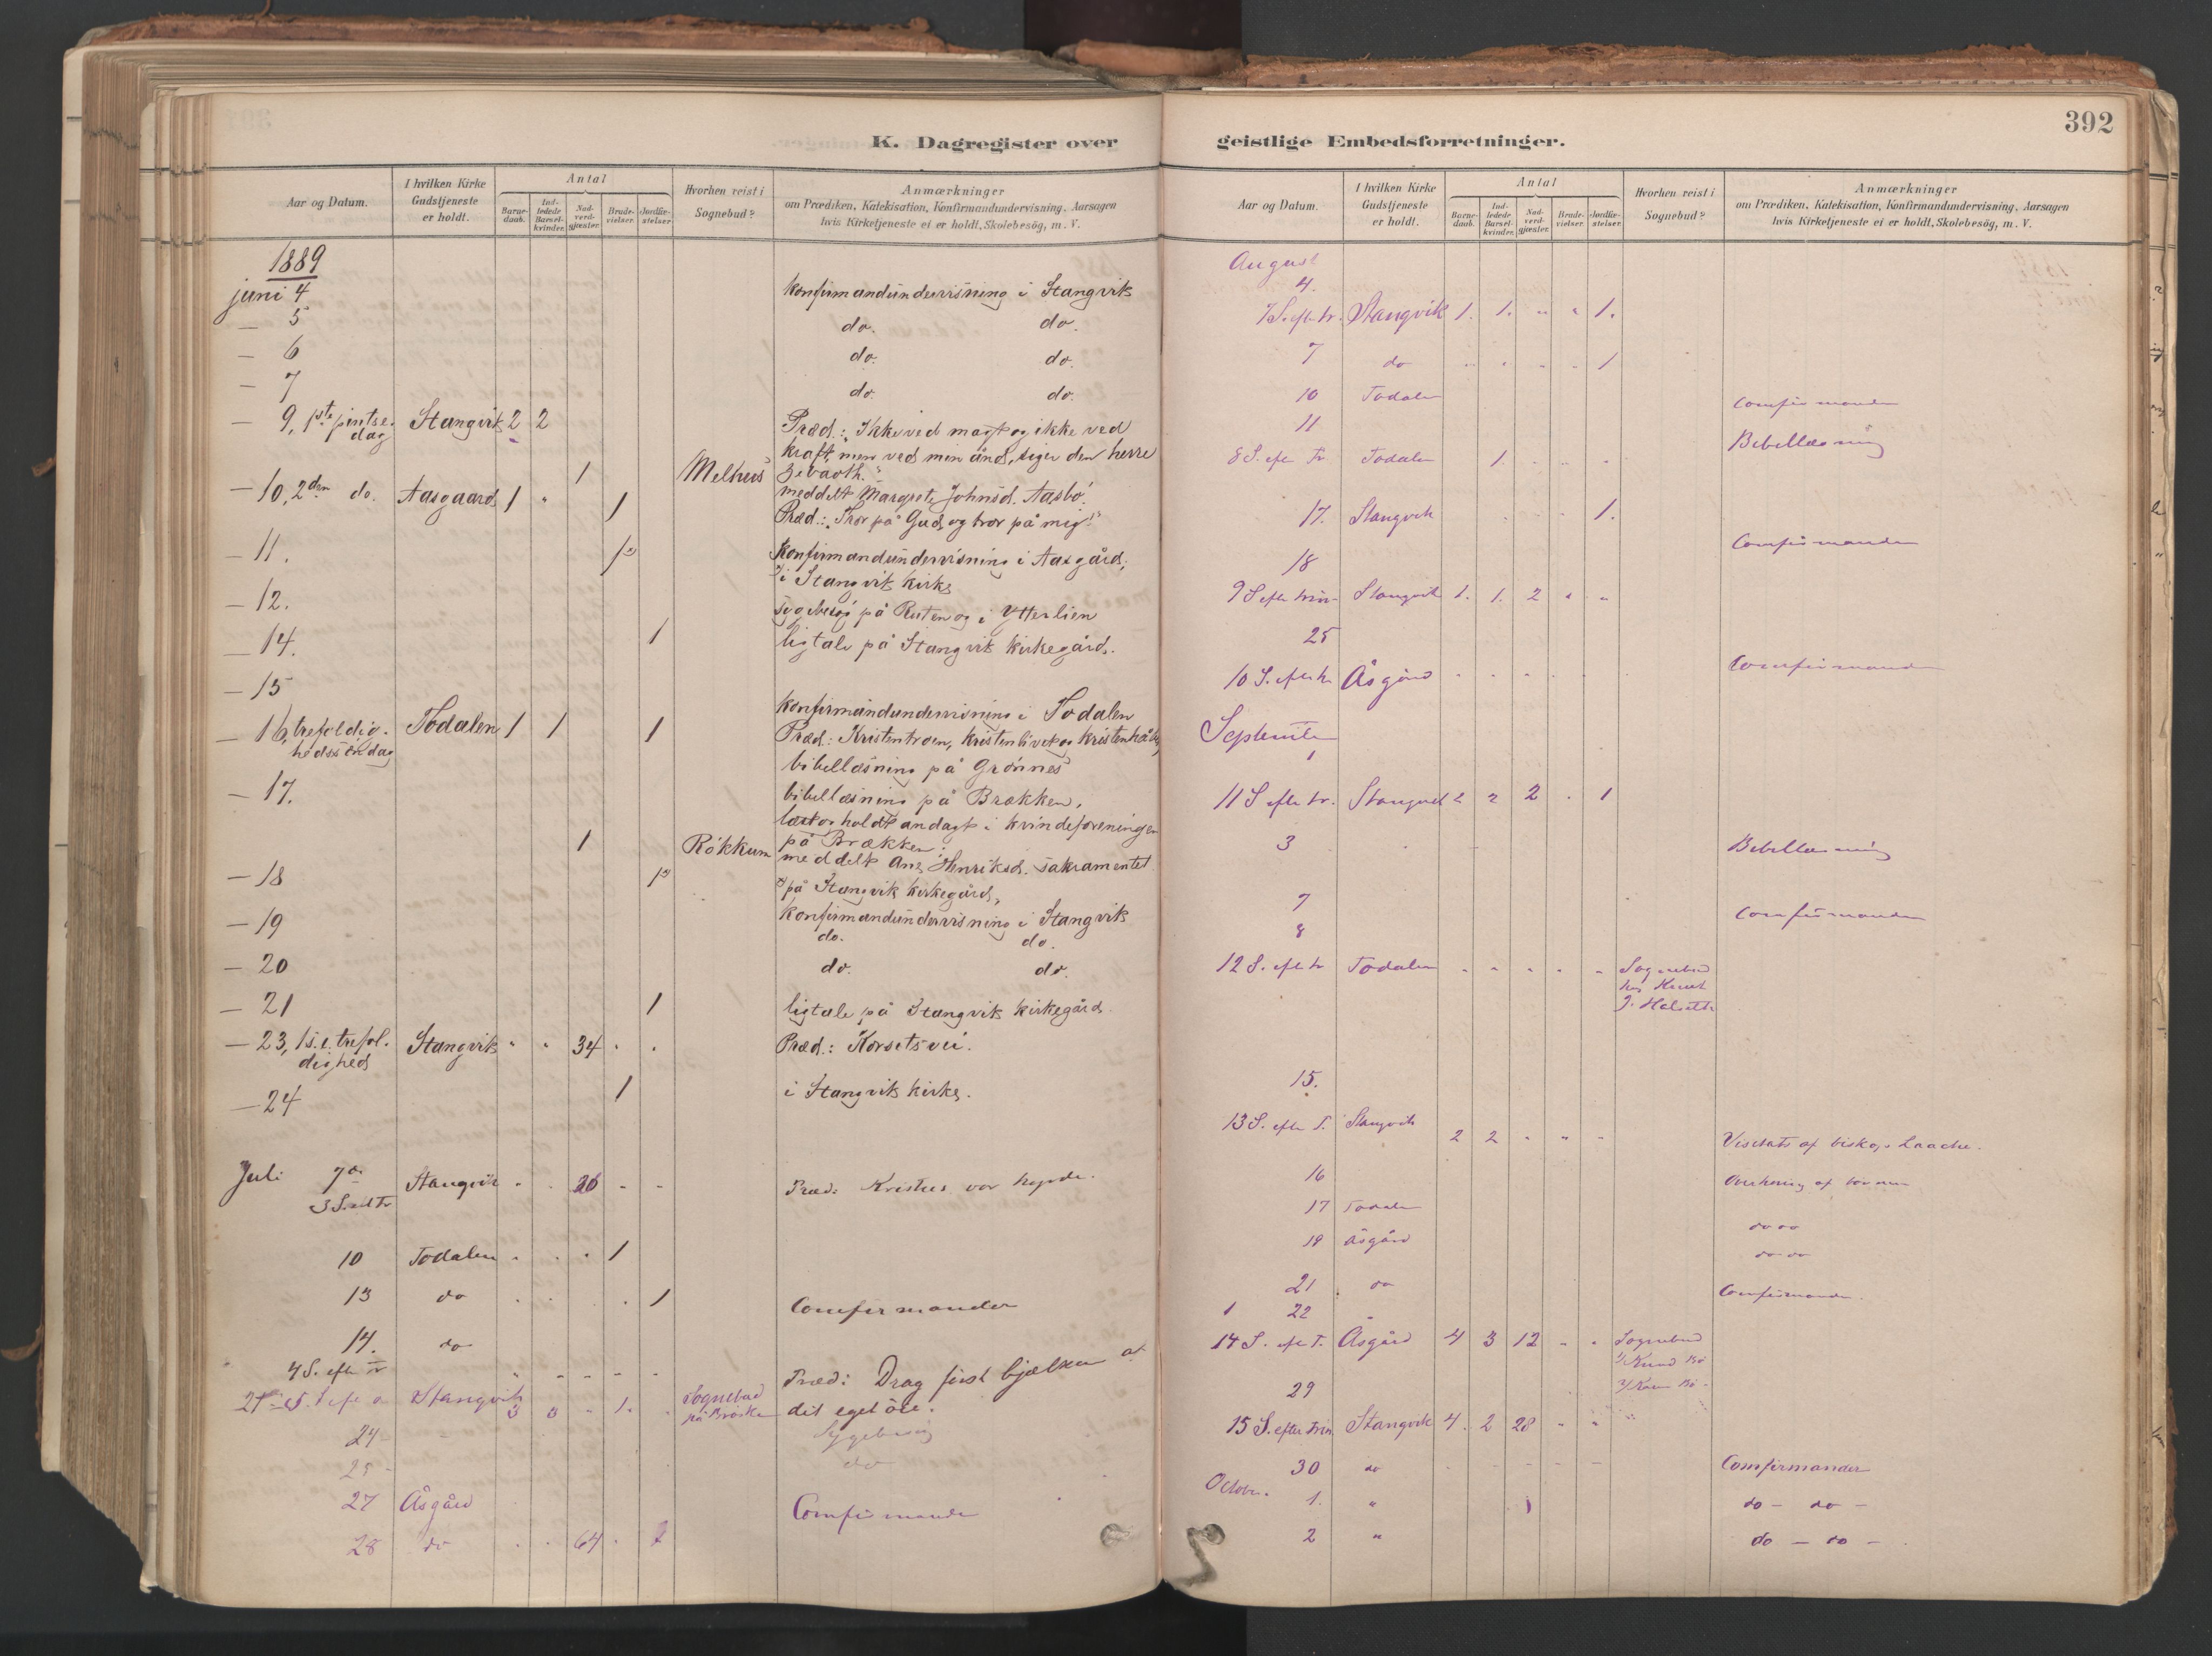 K. Dagregister over
Aar og Datum.
I hvilken Kirke Gudstjeneste er holdt.
Antal
Barne-daab.
Ind-ledede Barsel-kvinder.
Nad-verd-gjæster.
Brude-vielser.
Jordfæ-stelser.
Hvorhen reist i Sognebud?
Anmærkninger
om Prædiken, Katekisation, Konfirmandundervisning, Aarsagen
hvis Kirketjeneste ei er holdt, Skolebesög, m. V.
1889
juni 4 konfirmandundervisning i Stangvik
— 5 do. do.
— 6 do. do.
— 7 do. do.
— 9, 1ste pintse- Stangvik 2 2 Præd.: "Ikke ved magt og ikke ved
dag kraft, men ved min ånd, siger den herre
1 Melhus zebaoth."
meddelt Margrete Johnsd. Aasbö.
— 10, 2den do. Aasgaard 1 " 1 Præd.: "Tror på Gud, og tror på mig!"
— 11. 1 Konfirmandundervisning i Aasgård,
i Stangvik kirke
— 12. sygebesög på Rusten og i Ytterlien
— 14. 1 ligtale på Stangvik kirkegård.
— 15 konfirmandundervisning i Todalen
— 16, trefoldig- Todalen 1 1 1 Præd.: Kristentroen, kristenlivet og kristenhåbet,
hedssöndag bibellæsning på Grönnes
— 17. bibellæsning på Brækken,
holdt andagt i kvindeforeningen
på Brækken.
1 Rökkum meddelt Ane Henriksd. sakramentet
— 18 1 på Stangvik kirkegård,
— 19 konfirmandundervisning i Stangvik
do. do.
— 20 do. do.
— 21 1 ligtale på Stangvik kirkegård.
— 23, 1 s. e. trefol- Stangvik " " 34 " " Præd.: Korsets vei.
dighed
— 24 1 i Stangvik kirke.
Juli 7de Stangvik " " 26 - - Præd: Kristus vor hyrde.
3 S. e. Tr
10 Todalen . . . 1
13 do . . . . 1 Comfirmander
14. do
4 S. efter Tr Præd: Drag först bjælken af
Stangvik 3 3 " 1. Sognebud dit eget öie.
24 Sygebesög
25 do
27 Åsgård Comfirmander
28 do . . 64 .
geistlige Embedsforretninger.
392
Aar og Datum.
I hvilken Kirke Gudstjeneste er holdt.
Antal
Barne-daab.
Ind-ledede Barsel-kvinder.
Nad-verd-gjæster.
Brude-vielser.
Jordfæ-stelser.
Hvorhen reist i Sognebud?
Anmærkninger
om Prædiken, Katekisation, Konfirmandundervisning, Aarsagen
hvis Kirketjeneste ei er holdt, Skolebesög, m. V.
August
4.
7 S. eft tr. Stangvik 1. 1. " " 1.
7 do " " " " 1
10 Todalen Comfirmander
11 Bibellæsning
8 S. efter Tr. Todalen 1. " "
17. Stangvik 1.
18 Comfirmander
9 S efter trin Stangvik 1. 1. 2 " "
25
10 S. efter tr Åsgård Comfirmander
September
1
11 S efter tr. Stangvik 2 2 2 . 1
3 Bibellæsning
7 Comfirmander
8
12 S. efter tr Todalen " " " " " Sognebud
hos Knut
J. Halseth
15.
13 S. efter T. Stangvik 2 2 " " " Visitats af biskop Laache.
16 Overhöring af
17 Todalen do do
18 Åsgård do do
21 do Comfirmander.
1 22
14 S. efter T. Åsgård 4 3 12 " " Sognebud
1/ Knud Bö
29 2/ Bö.
15 S. efter trin. Stangvik 4. 2 28 " "
30 do Comfirmander
Octobr. 1. " 1 do - do -
2 " do - do -